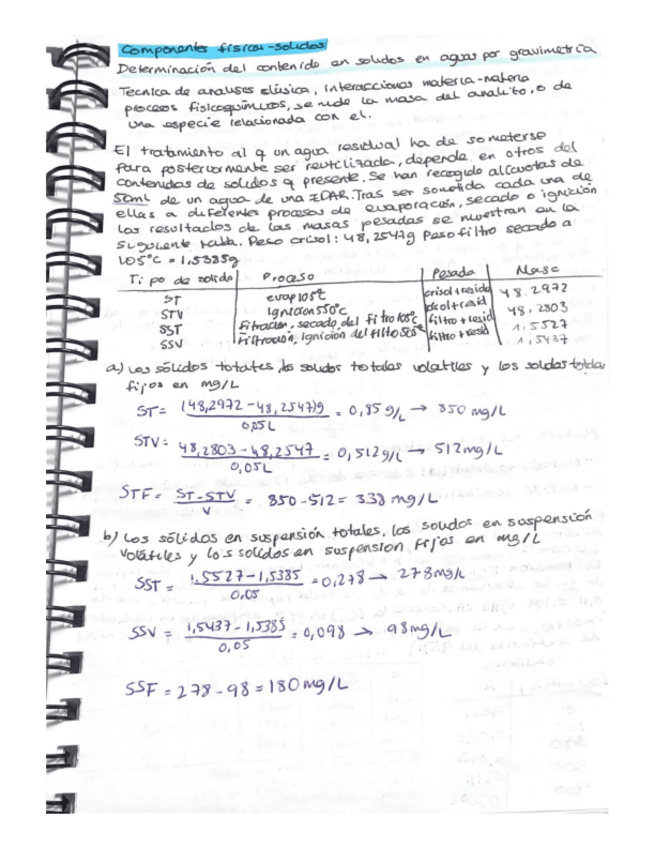 Componentes físicos-solidos
Determinación del contenido en solidos en aguas por gravimetria
Tecnica de analisis clásica, interacciones materia-materia
procesos fisicoquímicos, se mide la masa del analito, o de
una especie relacionada con el.
El tratamiento al q un agua residual ha de someterse
para posteriormente ser reutilizada, depende en otros del
contenidos de solidos q presente. Se han recogido alícuotas de
50ml de un agua de una EDAR. Tras ser sometida cada una de
ellas a diferentes procesos de evaporación, secado o ignición
los resultados de las masas pesadas se muestran en la
siguiente tabla. Peso crisol: 48,2547g Peso filtro secado a
105°C = 1,5385g
Tipo de solido Proceso Pesada Masa
ST evap 105°C crisol+resido 48.2972
STV Ignicion 550°C crisol+resid 48,2803
SST Filtracion, secado del filtro 105°C filtro+resid 1.5527
SSV Filtración, ignición del filtro 505° filtro+resid 1,5437
a) Los sólidos totales, los solidos totales volatiles y los solidos totales
fijos en mg/L
ST= (48,2972-48,2547)g / 0,05L = 0,85 g/L → 850 mg/L
STV= 48,2803-48,2547 / 0,05L = 0,512 g/L → 512 mg/L
STF = ST-STV / V = 850-512 = 338 mg/L
b) Los sólidos en suspensión totales, los solidos en suspensión
volátiles y los solidos en suspension fijos en mg/L
SST = 1,5527-1,5385 / 0,05 = 0,278 → 278 mg/L
SSV = 1,5437-1,5385 / 0,05 = 0,098 → 98 mg/L
SSF = 278-98 = 180 mg/L